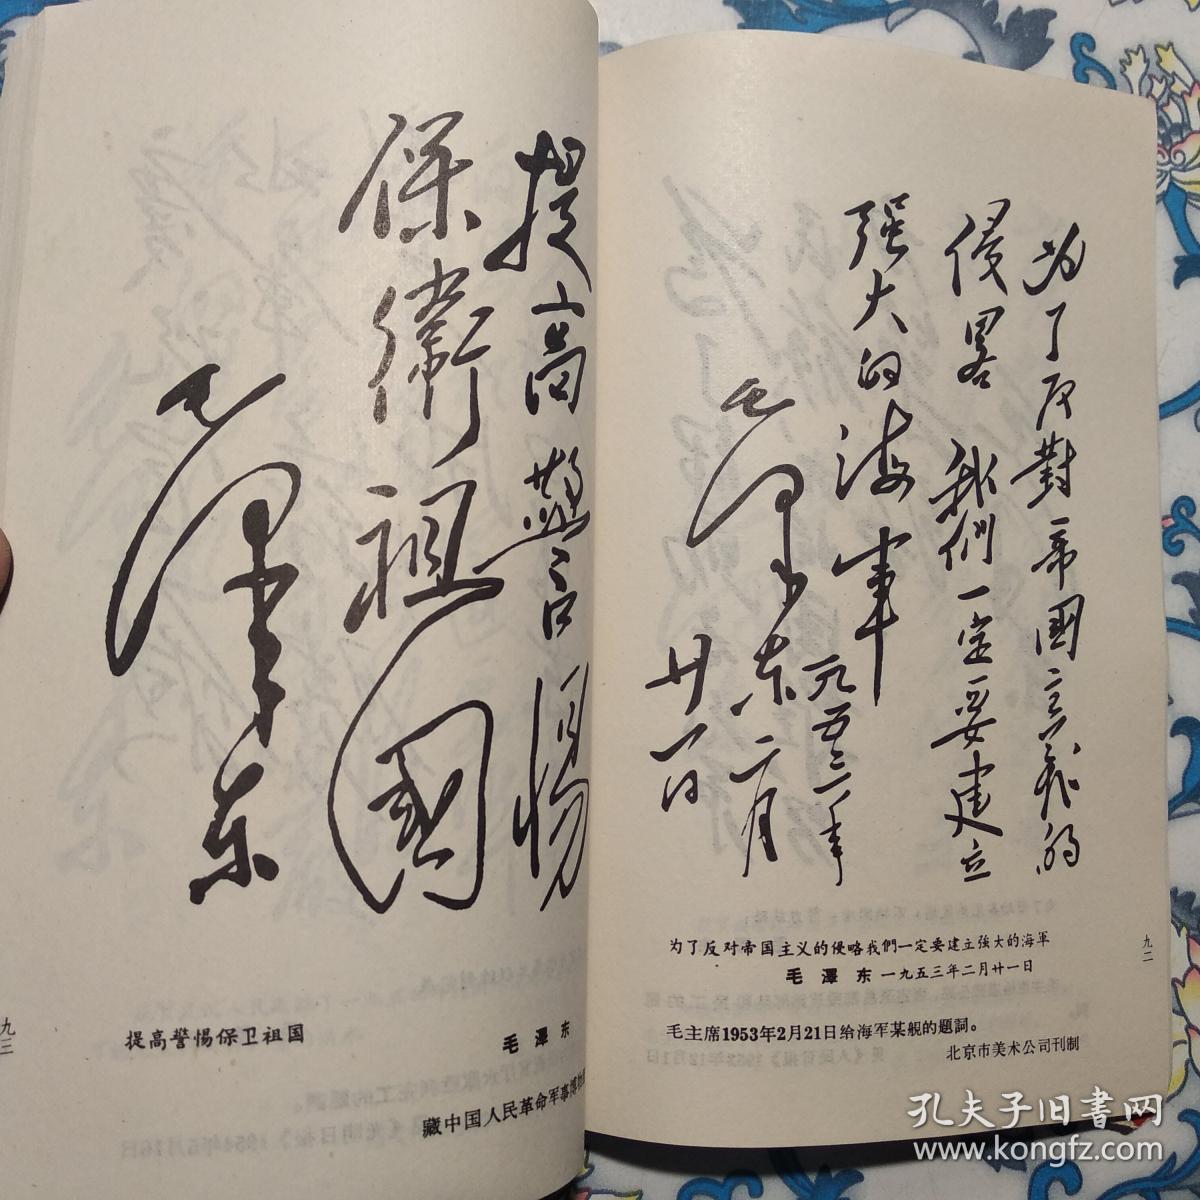 为了反對帝國主義的
侵畧我們一定要建立
强大的海軍
毛澤东
一九五三年
二月
廿一日
为了反对帝国主义的侵略我們一定要建立強大的海軍
毛澤东 一九五三年二月廿一日
毛主席1953年2月21日给海军某舰的題詞。
北京市美术公司刊制
九二
提高警惕
保衛祖國
毛澤东
提高警惕保卫祖国
毛澤东
藏中国人民革命军事博物
九三
孔夫子旧书网
www.kongfz.com